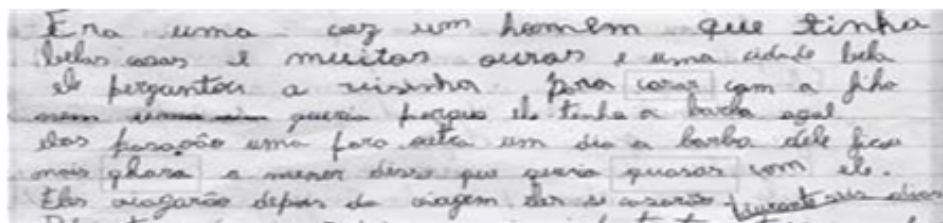 Era uma vez um homem que tinha
belas casas e muitos ouros e uma cidade bela
ele perguntou a visinha para casar com a filha
nem queria porque ele tinha a barba agul
elas pasarão uma para outra um dia a barba dele ficou
mais ghara a menor disse que queria quasar com ele.
Eles viagarão depois da viagem eles se casarão. durante seis dias